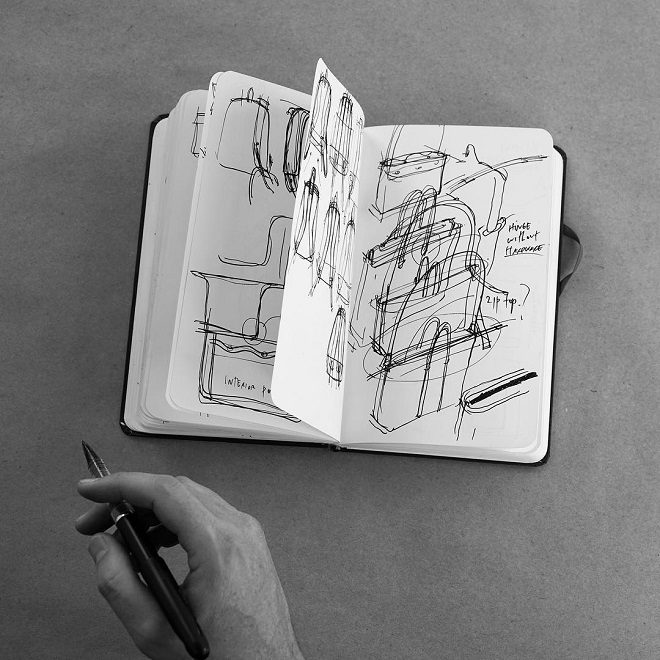 INTERIOR
HINGE
without
HARDWARE
zip top?